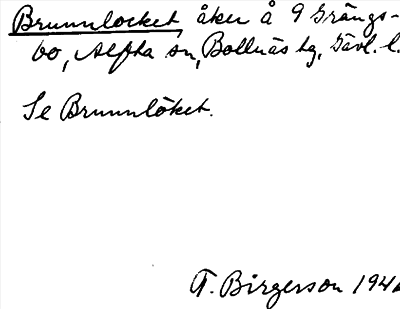 Brunnlocket, åker å 9 Grängs-
bo, Alfta sn, Bollnäs tg, Gävl. l.
Se Brunnlöket.
T. Birgerson 194